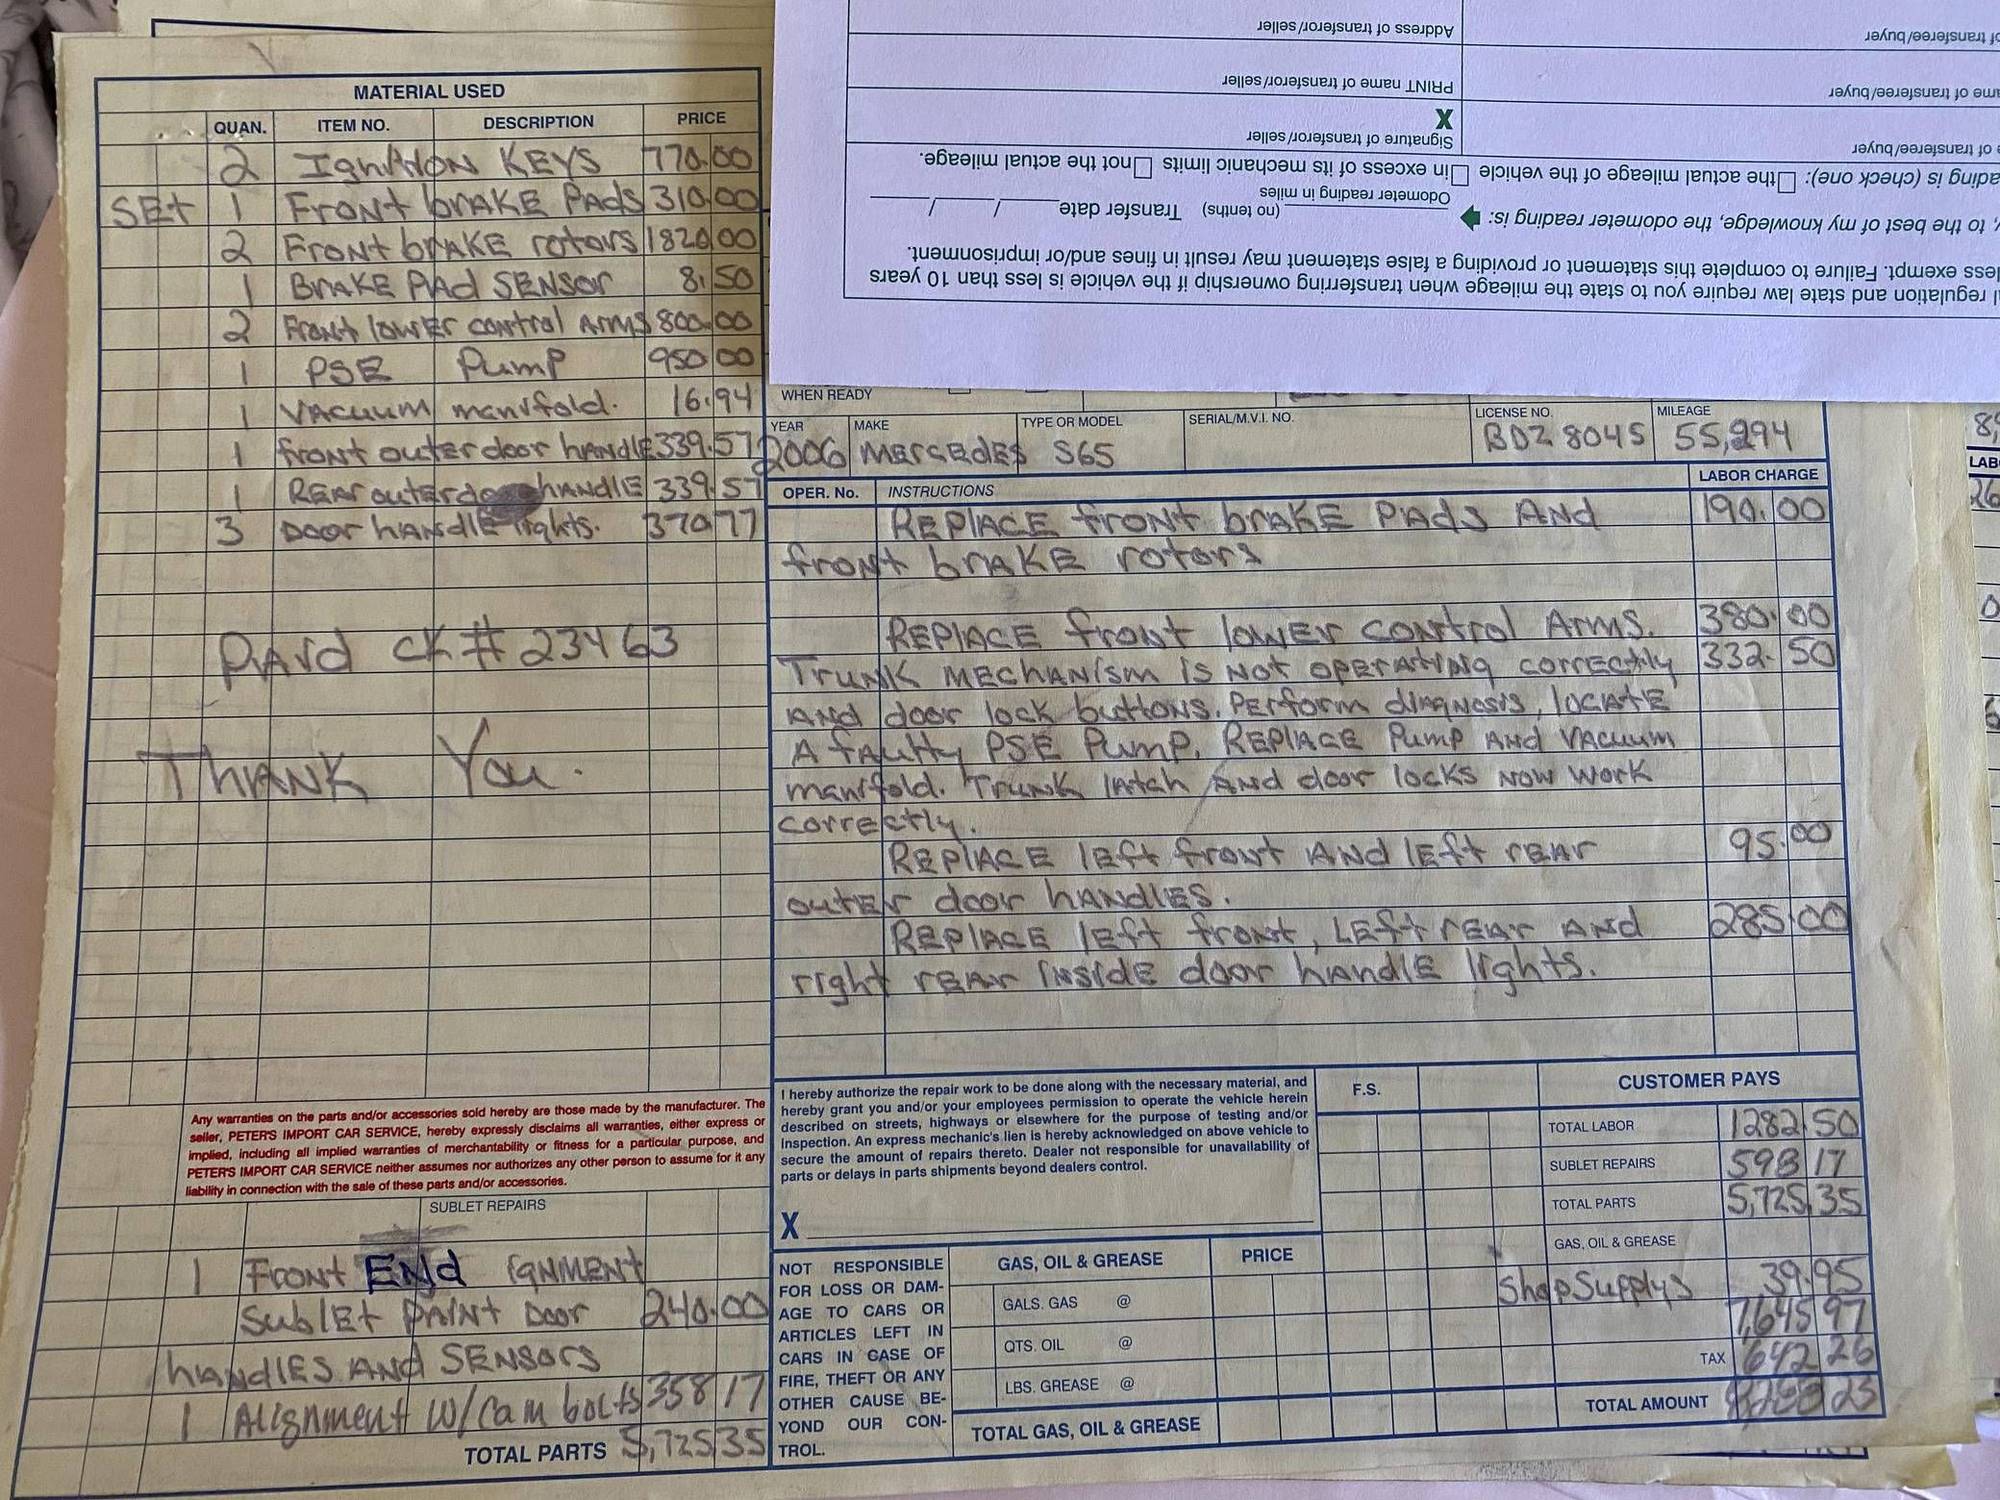 MATERIAL USED
QUAN. ITEM NO. DESCRIPTION PRICE
2 Ignition KEYS 770.00
SET 1 Front brAKE PAds 310.00
2 Front brAKE rotors 1820.00
1 BrAKE PAd SENSor 8.50
2 Front lower control Arms 800.00
1 PSE Pump 950.00
1 VACuum manifold. 16.94
1 front outer door hANdlE 339.57
1 REAr outer door hANdlE 339.57
3 Door hANdlE lights. 370.77
PAid CK# 23463
ThANK You.
Any warranties on the parts and/or accessories sold hereby are those made by the manufacturer. The
seller, PETER'S IMPORT CAR SERVICE, hereby expressly disclaims all warranties, either express or
implied, including all implied warranties of merchantability or fitness for a particular purpose, and
PETER'S IMPORT CAR SERVICE neither assumes nor authorizes any other person to assume for it any
liability in connection with the sale of these parts and/or accessories.
SUBLET REPAIRS
1 Front End IGNMENT
SublEt PAINT Door 240.00
hANdlES AND SENSORS
1 Alignment W/Cam bolts 358 17
TOTAL PARTS 5,725 35
Address of transferor/seller
of transferee/buyer
PRINT name of transferor/seller
me of transferee/buyer
X
Signature of transferor/seller
e of transferee/buyer
ading is (check one): the actual mileage of the vehicle in excess of its mechanic limits not the actual mileage.
, to the best of my knowledge, the odometer reading is: (no tenths) Transfer date / /
Odometer reading in miles
less exempt. Failure to complete this statement or providing a false statement may result in fines and/or imprisonment.
l regulation and state law require you to state the mileage when transferring ownership if the vehicle is less than 10 years
WHEN READY
YEAR MAKE TYPE OR MODEL SERIAL/M.V.I. NO. LICENSE NO. MILEAGE
2006 MErcEdES S65 BDZ 8045 55,294
OPER. No. INSTRUCTIONS LABOR CHARGE
REPLACE front brAKE PAds ANd 190.00
front brAKE rotors
REPLACE front lower control Arms. 380.00
TruNK MEchANism is Not opErAting correctly 332.50
ANd door lock buttons. PErform diAgNosis, locAtE
A fAulty PSE Pump. REPlACE Pump AND VACuum
manifold. TruNK lAtch AND door locks NOW work
correctly.
REPlACE lEft front ANd lEft rEAr 95.00
outEr door hANdlES.
REPlACE lEft front, LEft rEAr ANd 285.00
right rEAr iNsidE door hANdlE lights.
I hereby authorize the repair work to be done along with the necessary material, and
hereby grant you and/or your employees permission to operate the vehicle herein
described on streets, highways or elsewhere for the purpose of testing and/or
inspection. An express mechanic's lien is hereby acknowledged on above vehicle to
secure the amount of repairs thereto. Dealer not responsible for unavailability of
parts or delays in parts shipments beyond dealers control.
X
F.S.
CUSTOMER PAYS
TOTAL LABOR 1282.50
SUBLET REPAIRS 598 17
TOTAL PARTS 5,725.35
GAS, OIL & GREASE
Shop Supplys 39.95
7,645 97
TAX 642 26
TOTAL AMOUNT
NOT RESPONSIBLE
FOR LOSS OR DAM-
AGE TO CARS OR
ARTICLES LEFT IN
CARS IN CASE OF
FIRE, THEFT OR ANY
OTHER CAUSE BE-
YOND OUR CON-
TROL.
GAS, OIL & GREASE PRICE
GALS. GAS @
QTS. OIL @
LBS. GREASE @
TOTAL GAS, OIL & GREASE